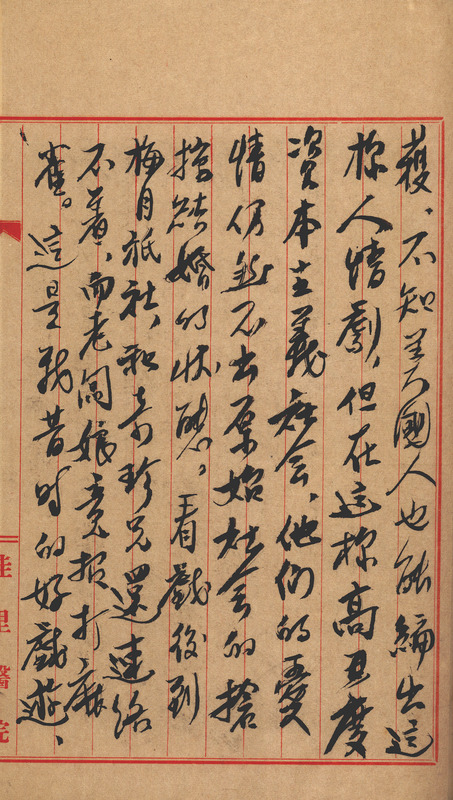 穫、不知美國人也能編出這
樣人情劇，但在這樣高丑度
資本主義社会，他们的愛
情仍逃不出原始社会的搶
掠結婚的狀態。看戲後到
梅月祇社，和奇珍兄還連絡
不著，而老闆娘竟报打麻
雀。這是我昔时的好戲遊、
醫院